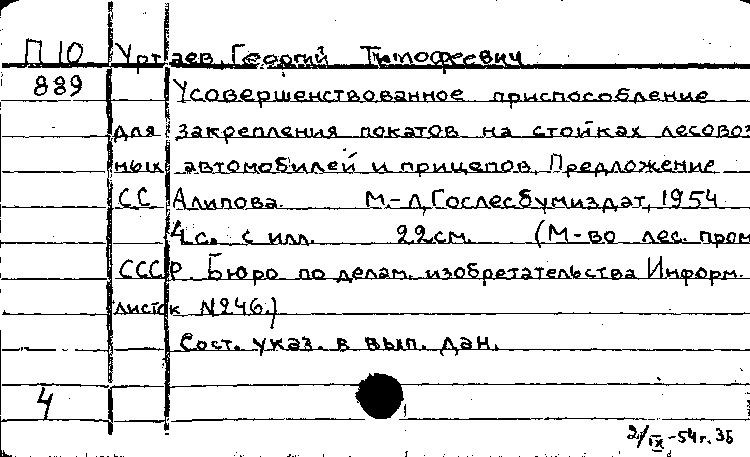 П 10 Уртаев, Георгий Тимофеевич
889 Усовершенствованное приспособление
для закрепления покатов на стойках лесовоз
ных автомобилей и прицепов. Предложение
СС Алипова. М.-Л, Гослесбумиздат, 1954
4 с. с илл. 22см. (М-во лес. пром
СССР. Бюро по делам. изобретательства Информ.
листок №246.)
Сост. указ. в вып. дан.
4
2/IX-54г. 3Б